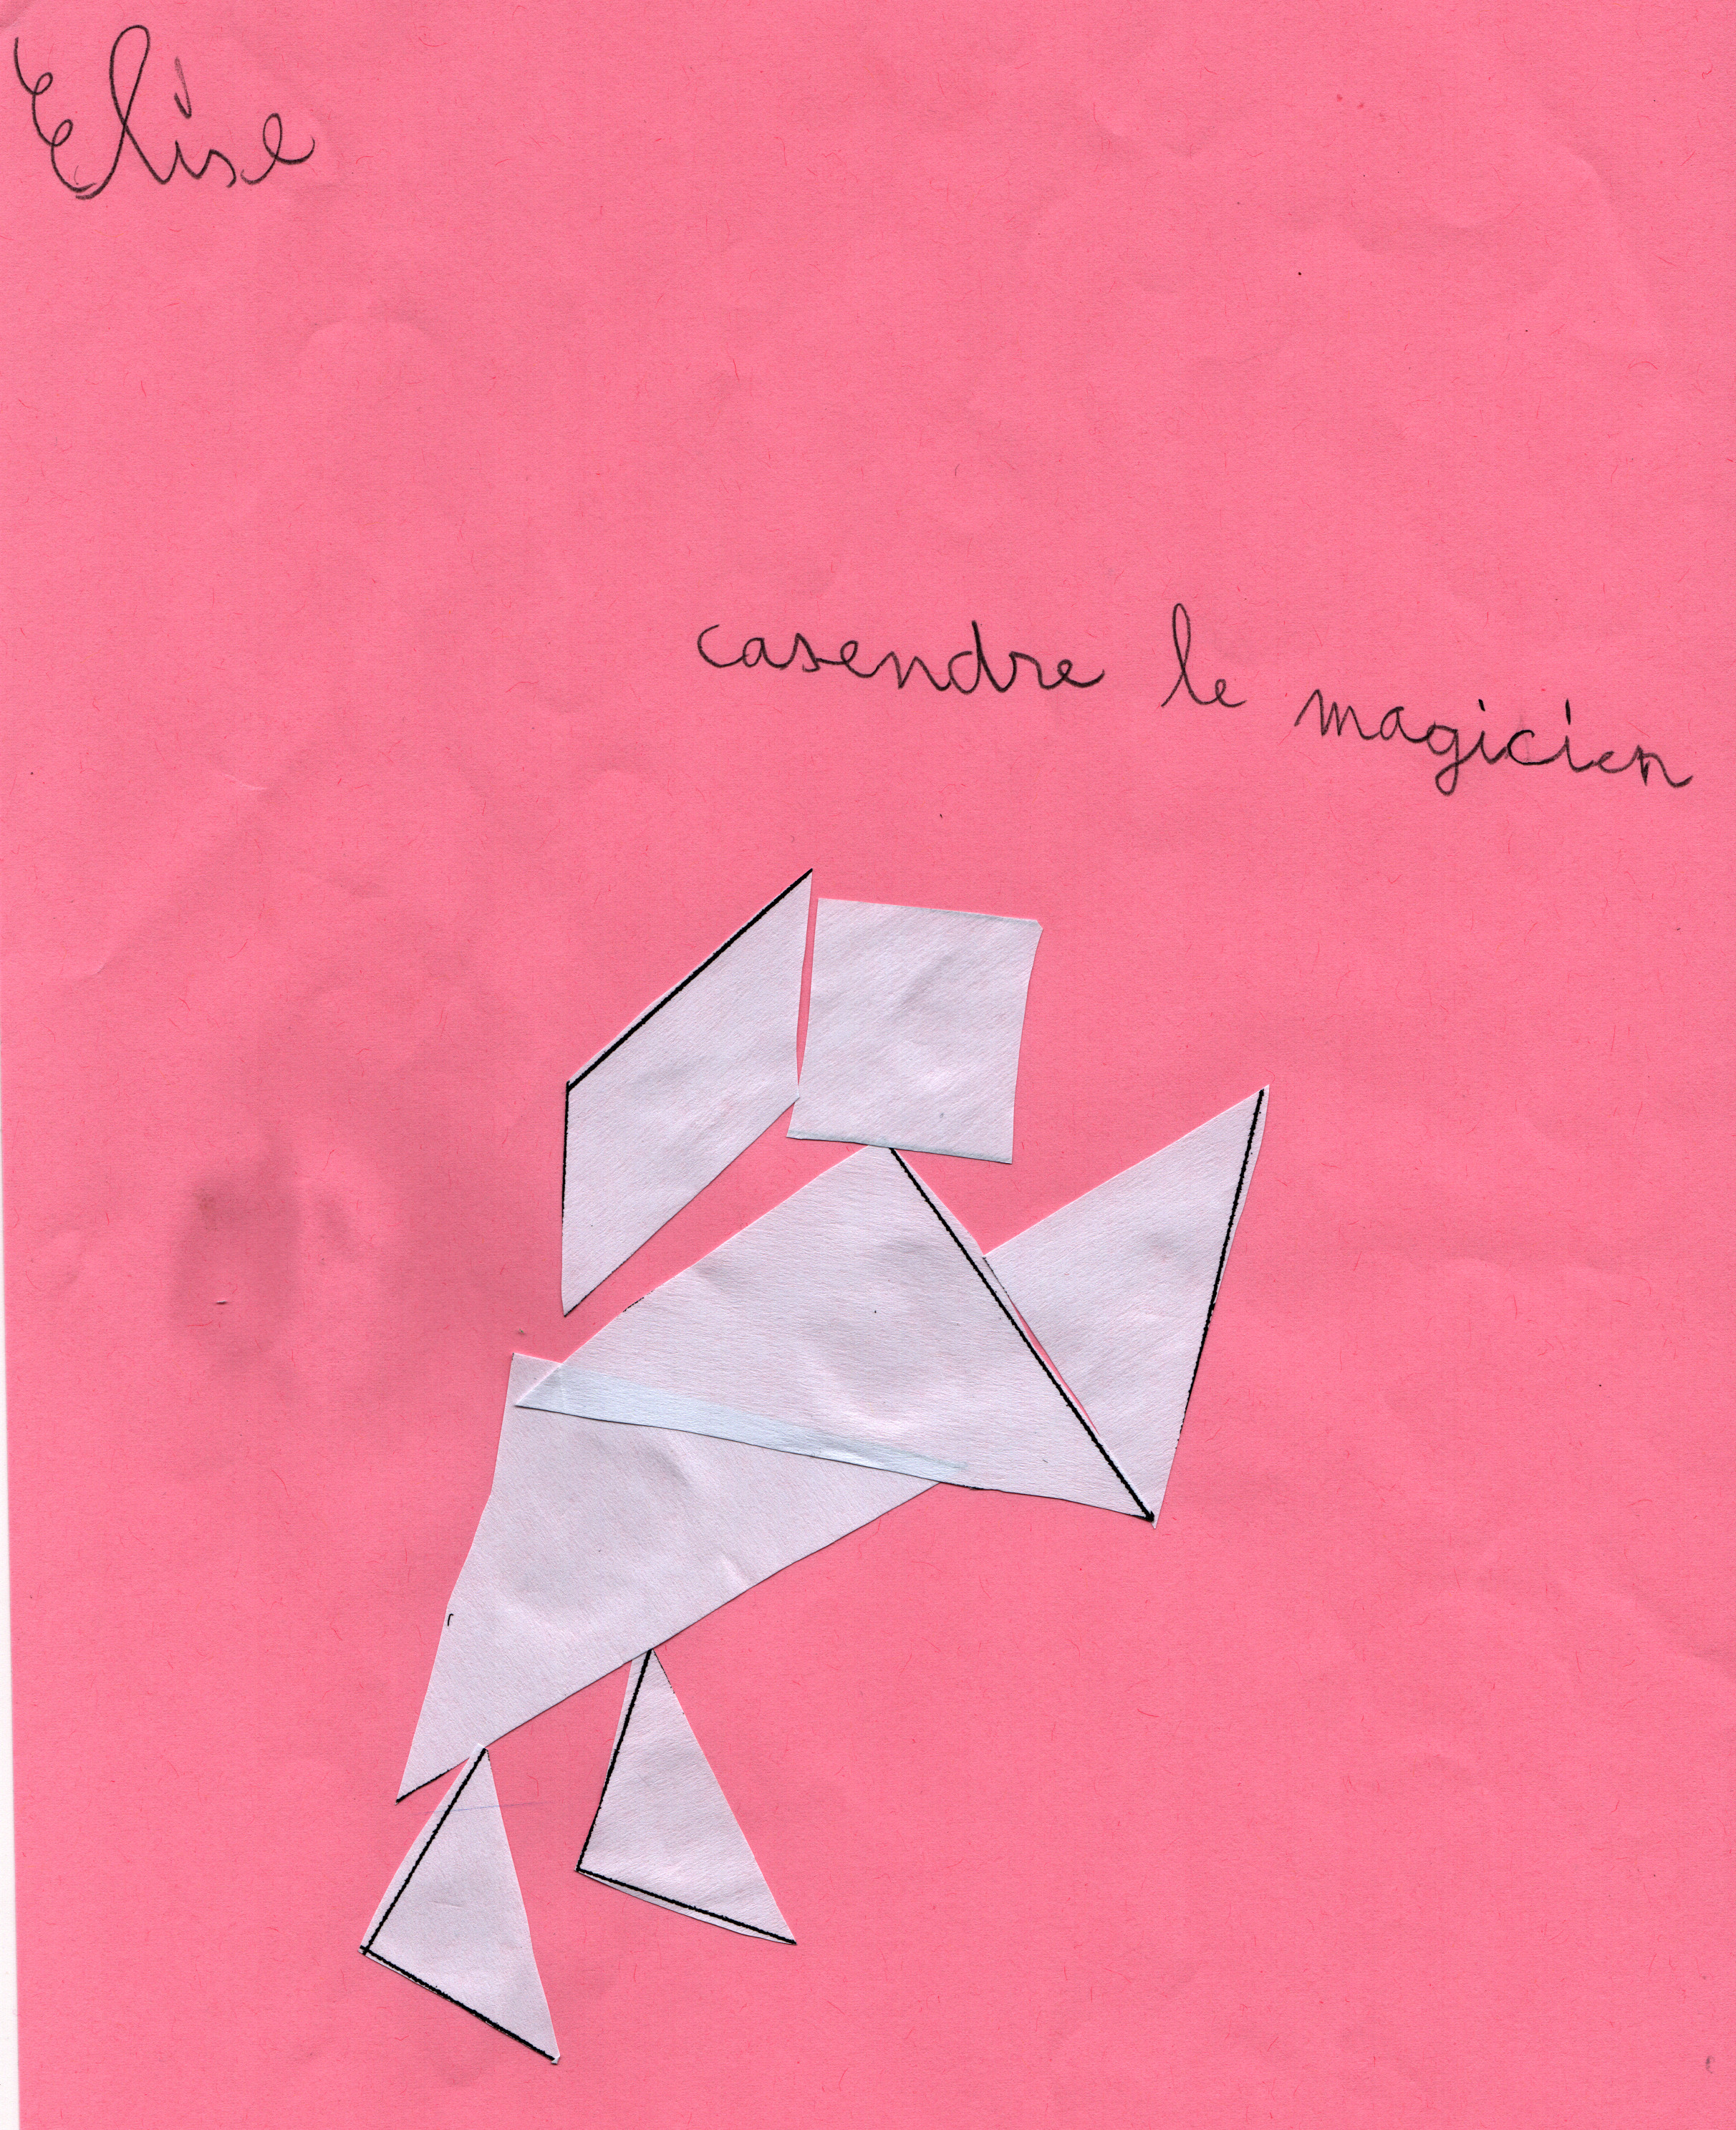 Elise
casendre le magicien